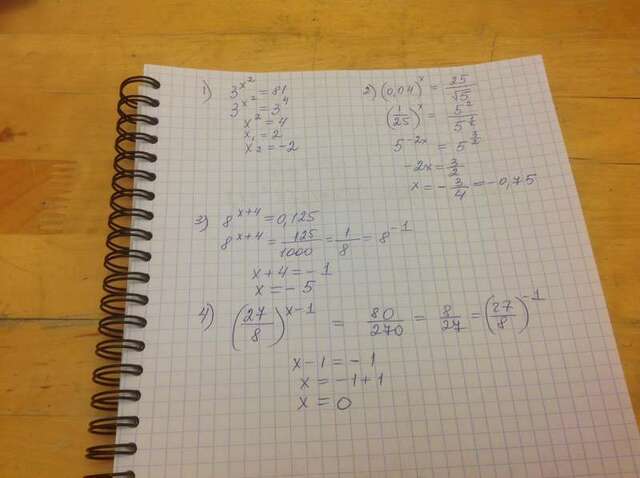 1) 3^{x^2} = 81
3^{x^2} = 3^4
x^2 = 4
x_1 = 2
x_2 = -2
2) (0,04)^x = 25/√5
(1/25)^x = 5^2/5^{1/2}
5^{-2x} = 5^{3/2}
-2x = 3/2
x = -3/4 = -0,75
3) 8^{x+4} = 0,125
8^{x+4} = 125/1000 = 1/8 = 8^{-1}
x+4 = -1
x = -5
4) (27/8)^{x-1} = 80/270 = 8/27 = (27/8)^{-1}
x-1 = -1
x = -1+1
x = 0